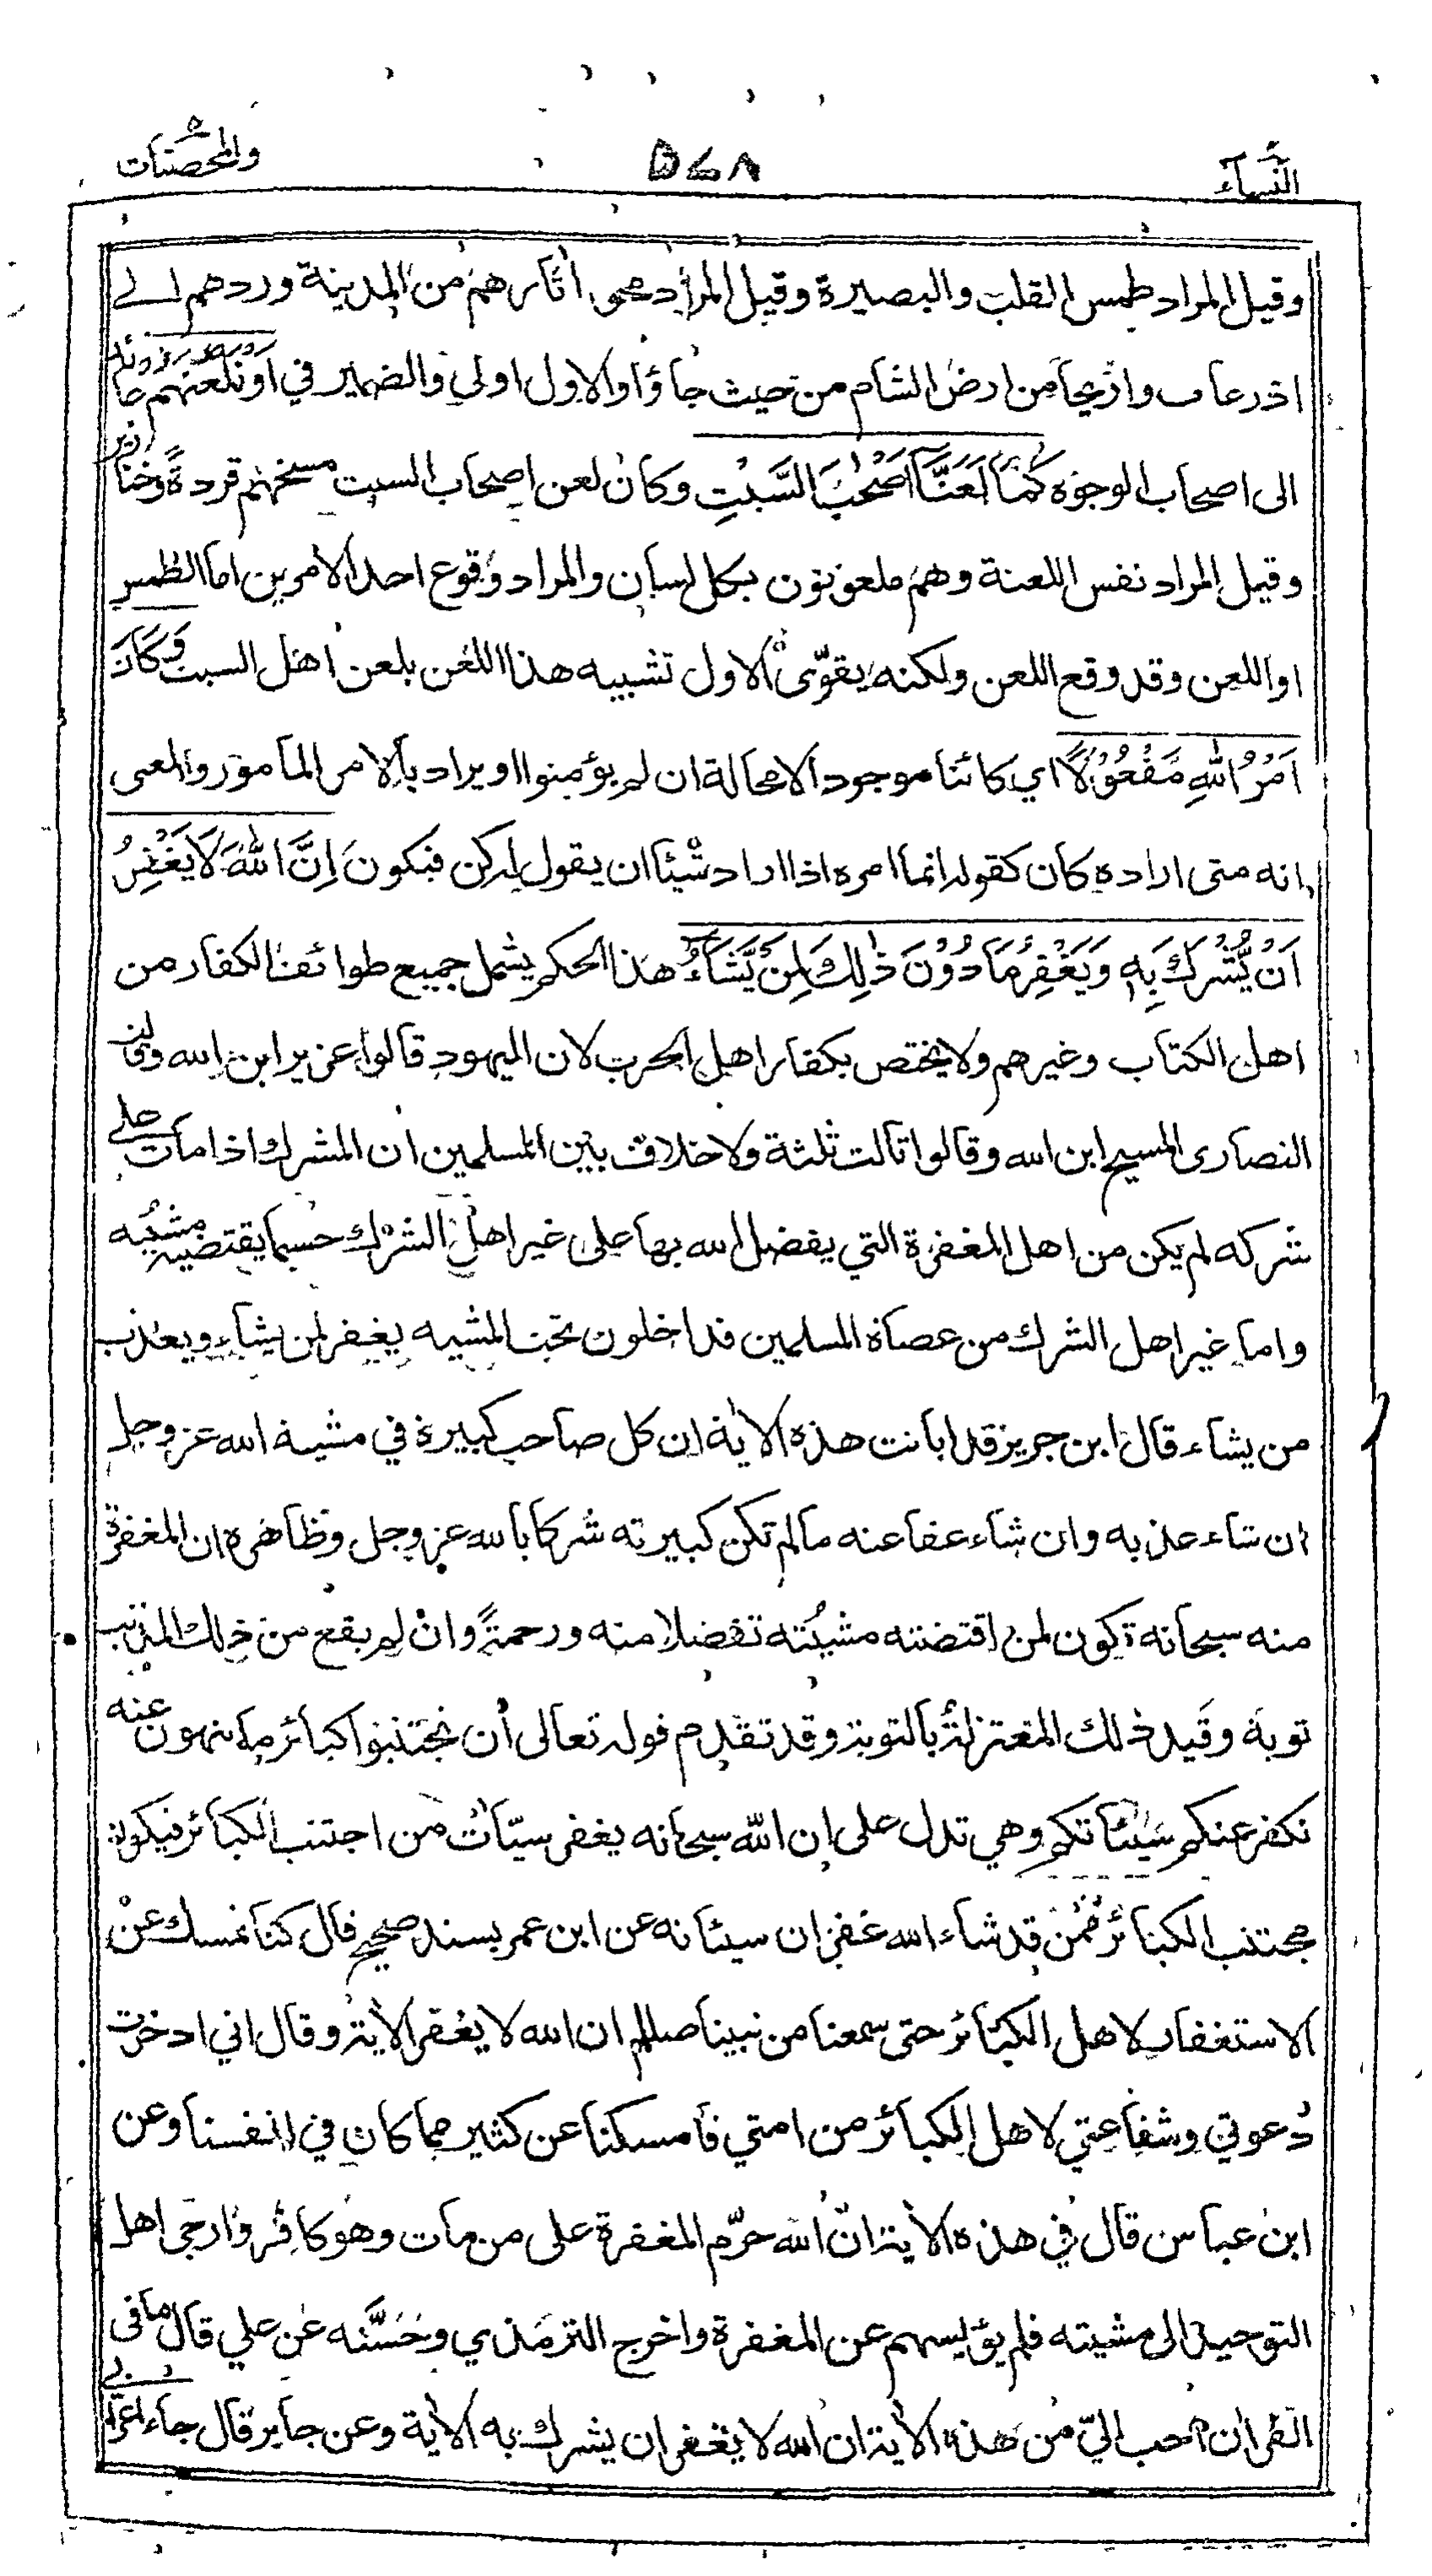 النسآء ٥٧٨ والمحصنات
وقيل المراد طمس القلب والبصيرة وقيل المراد محو اثارهم من المدينة وردهم الى
اذرعات واريحا من ارض الشام من حيث جاؤا والاول اولى والضمير في اَوْ نَلْعَنَهُمْ عائد
الى اصحاب الوجوه كَمَا لَعَنَّا اَصْحٰبَ السَّبْتِ وكان لعن اصحاب السبت مسخهم قردة وخنازير
وقيل المراد نفس اللعنة وهم ملعونون بكل لسان والمراد وقوع احد الامرين اما الطمس
او اللعن وقد وقع اللعن ولكنه يقوّى الاول تشبيه هذا اللعن بلعن اهل السبت وَكَانَ
اَمْرُ اللهِ مَفْعُوْلًا اي كائنا موجودا لا محالة ان لم يؤمنوا او يراد بالامر المأمور والمعنى
انه متى اراده كان كقوله انما امره اذا اراد شيئا ان يقول له كن فيكون اِنَّ اللهَ لَا يَغْفِرُ
اَنْ يُّشْرَكَ بِهٖ وَيَغْفِرُ مَا دُوْنَ ذٰلِكَ لِمَنْ يَّشَآءُ هذا الحكم يشمل جميع طوائف الكفار من
اهل الكتاب وغيرهم ولا يختص بكفار اهل الحرب لان اليهود قالوا عزير ابن الله وقالت
النصارى المسيح ابن الله وقالوا ثالث ثلثة ولا خلاف بين المسلمين ان المشرك اذا مات على
شركه لم يكن من اهل المغفرة التي يفضل الله بها على غير اهل الشرك حسبما يقتضيه مشيّه
واما غير اهل الشرك من عصاة المسلمين فداخلون تحت المشيه يغفر لمن يشاء ويعذب
من يشاء قال ابن جرير قد ابانت هذه الاٰية ان كل صاحب كبيرة في مشية الله عز وجل
ان شاء عذبه وان شاء عفا عنه مالم تكن كبيرته شركا بالله عز وجل وظاهره ان المغفرة
منه سبحانه تكون لمن اقتضته مشيّته تفضلا منه ورحمةً وان لم يقع من ذلك المذنب
توبة وقيد ذلك المعتزلة بالتوبة وقد تقدم قوله تعالى ان تجتنبوا كبائر ما تنهون عنه
نكفر عنكم سيئاتكم وهي تدل على ان الله سبحانه يغفر سيّاٰت من اجتنب الكبائر فيكون
مجتنب الكبائر ممن قد شاء الله غفران سيئاته عن ابن عمر بسند صحيح قال كنا نمسك عن
الاستغفار لاهل الكبائر حتى سمعنا من نبينا صللم ان الله لا يغفر الاٰية وقال اني ادخرت
دعوتي وشفاعتي لاهل الكبائر من امتي فأمسكنا عن كثير مما كان في انفسنا وعن
ابن عباس قال في هذه الاٰية انّ الله حرّم المغفرة على من مات وهو كافر وارجى اهل
التوحيد الى مشيته فلم يؤيسهم عن المغفرة واخرج الترمذي وحَسَّنه عن علي قال ما فى
القراٰن احب اليّ من هذه الاٰية ان الله لا يغفر ان يشرك به الاٰية وعن جابر قال جاء اعرابي